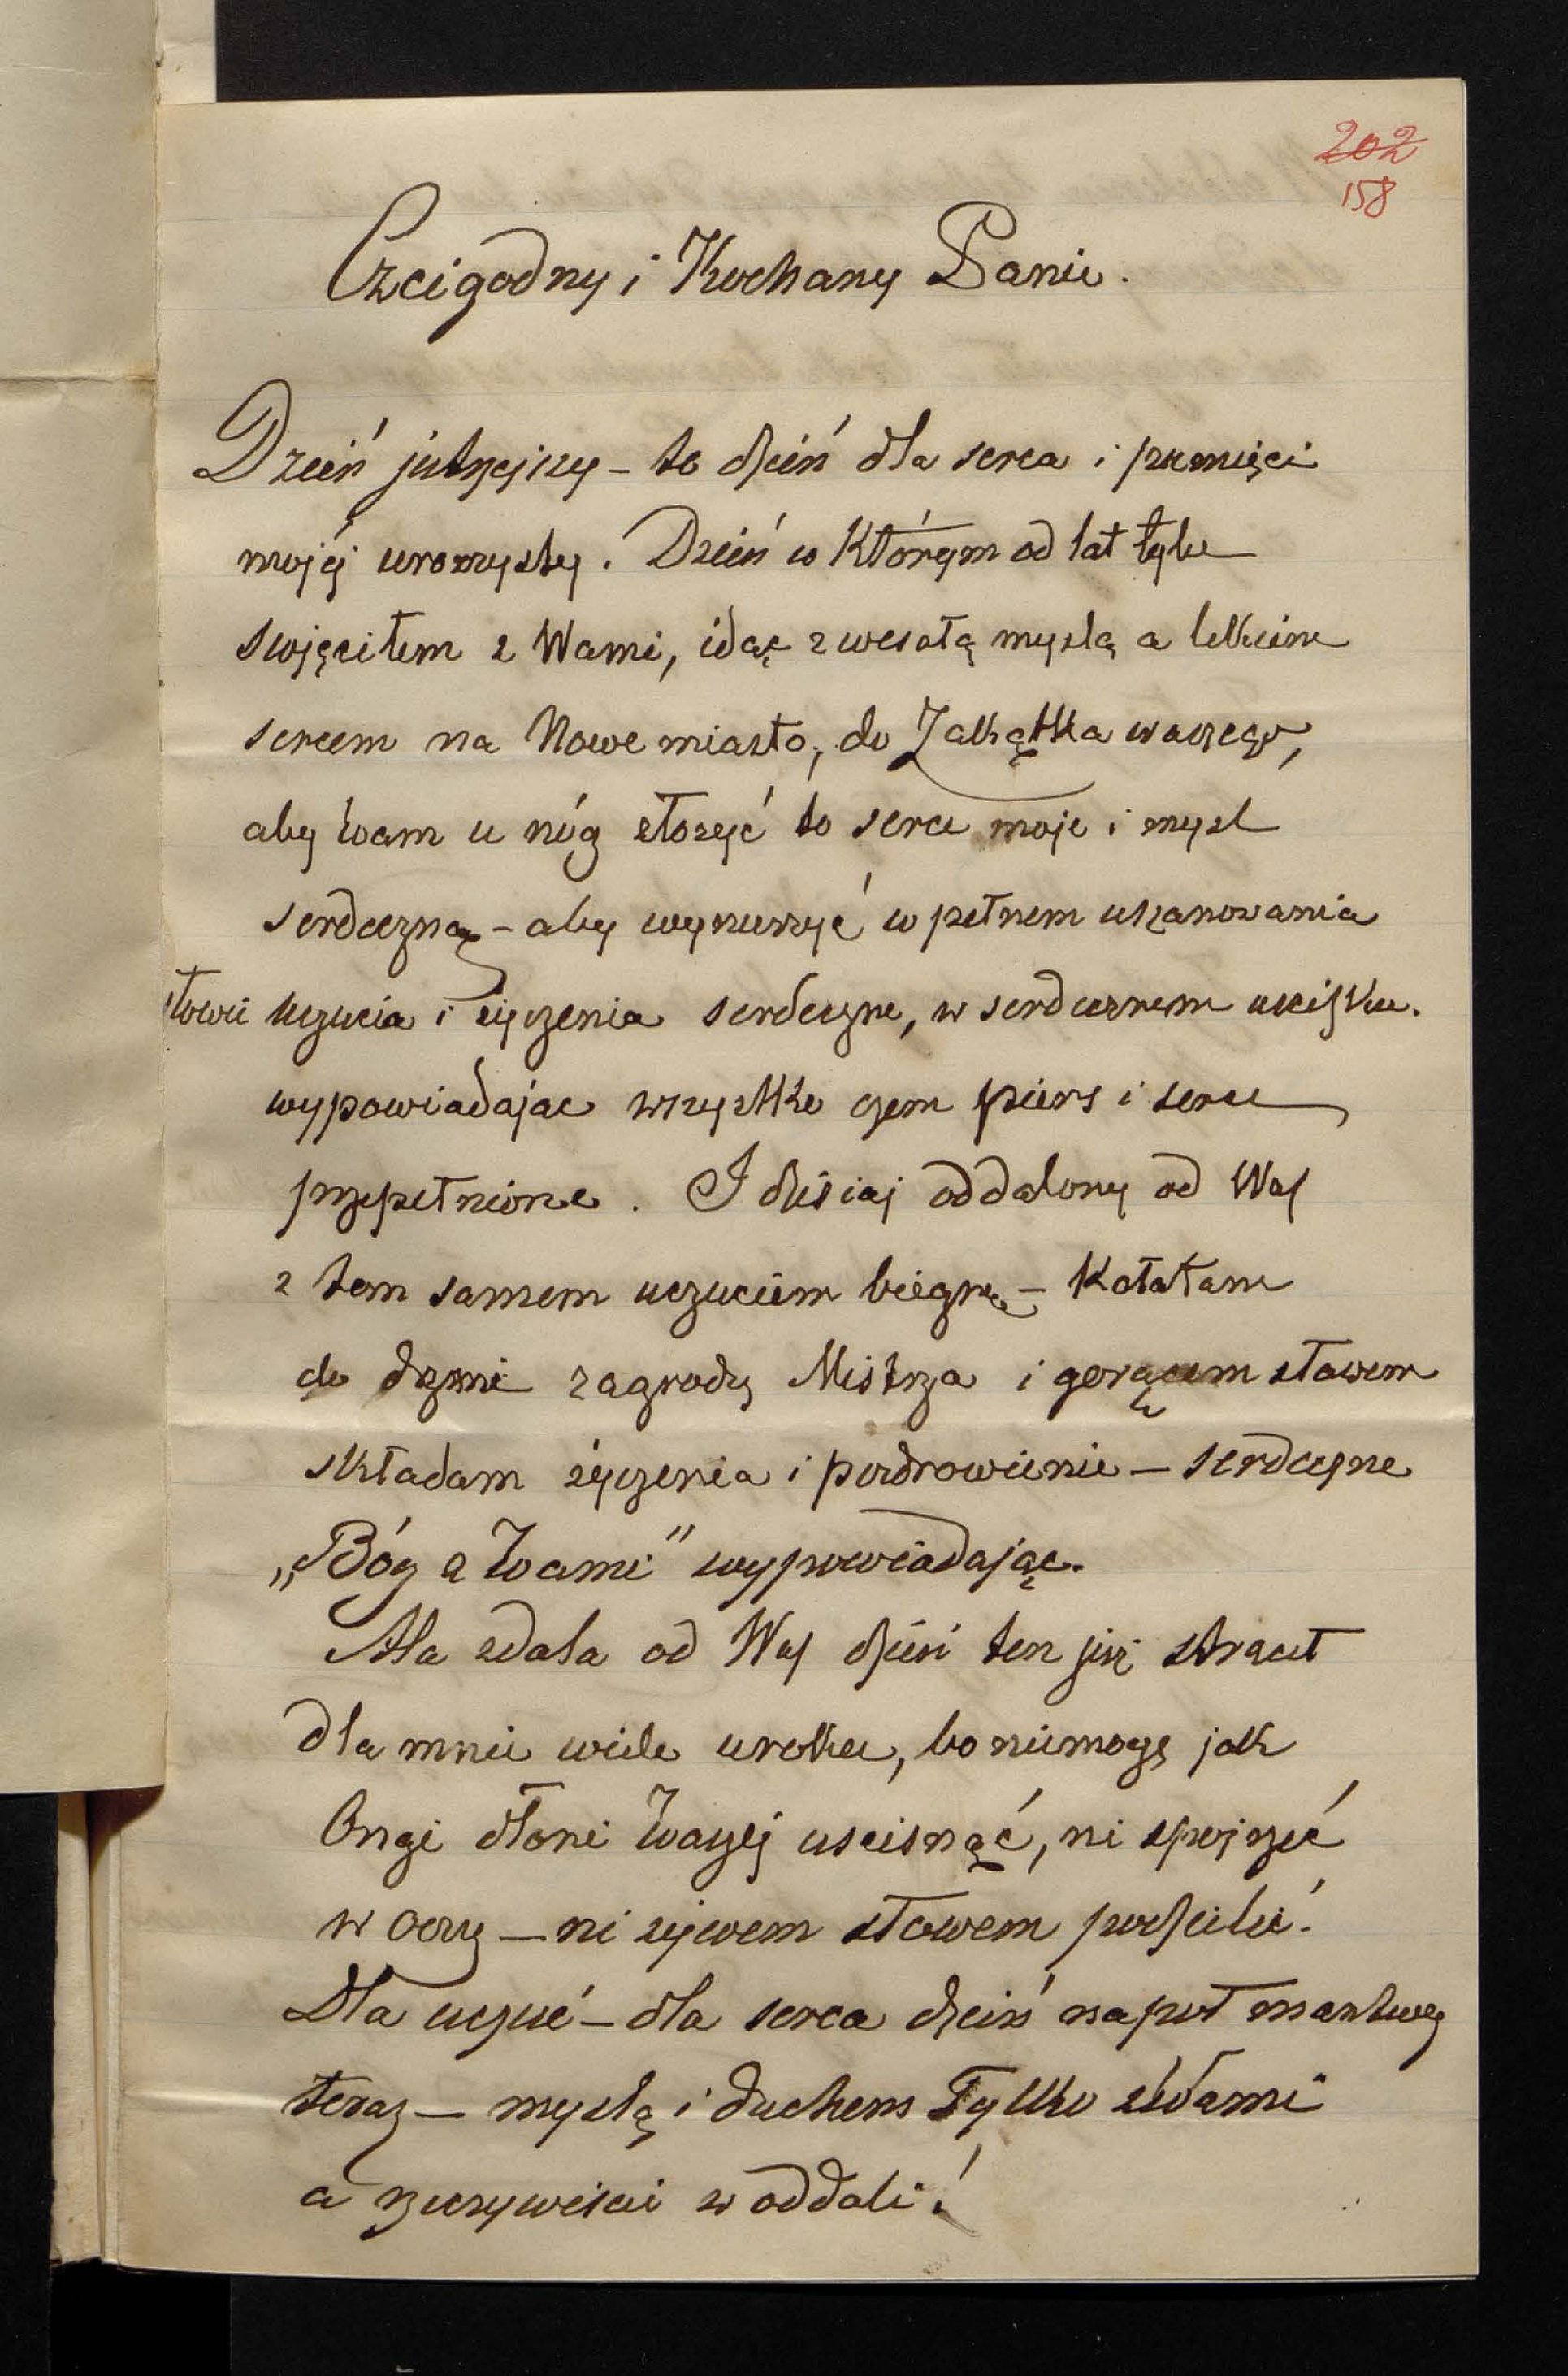 202
158
Czcigodny i Kochany Panie.
Dzień jutrzejszy – to dzień dla serca i pamięci
mojéj uroczysty. Dzień w którym od lat tylu
swięciłem z Wami, idąc z wesołą myslą a lekkiem
sercem na Nowe miasto, do Zakątka waszego,
aby Wam u nóg złożyć to serce moje i mysl
serdeczną – aby wynurzyć w pełnem uszanowania
słowie uczucia i życzenia serdeczne, w serdecznem uscisku.
wypowiadajac wszystko czem piers i serce
przepełnione. I dzisiaj oddalony od Was
z tem samem uczuciem biegnę – Kołatam
do drzwi zagrody Mistrza i gorącem słowem
składam życzenia i pozdrowienie – serdeczne
„Bóg z Wami" wypowiadając.
Ale zdala od Was dzień ten już stracił
dla mnie wiele uroku, bo niemogę jak
Ongi dłoni Waszéj uscisnąć, ni spojrzeć
w oczy – ni żywem słowem podzielić.
Dla uczuć – dla serca dzień napoł martwy
teraz – myslą i duchem Tylko z Wami
a rzeczywiscie w oddali!